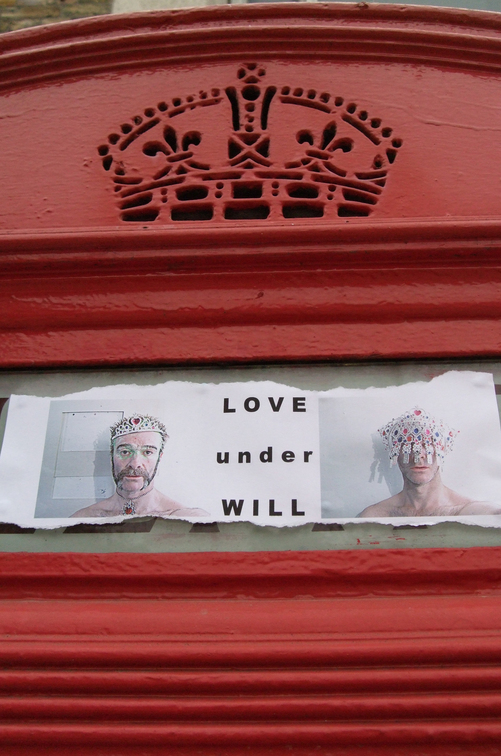 LOVE
under
WILL